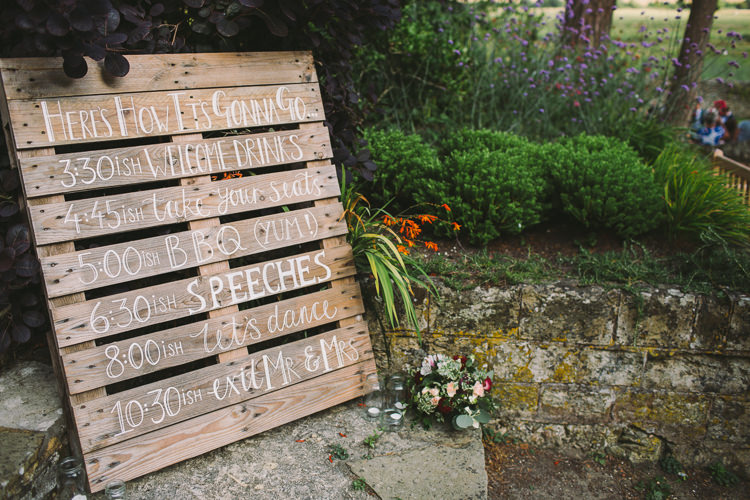 HERE'S HOW IT'S GONNA GO...
3:30ISH WELCOME DRINKS
4:45ISH take your seats
5:00ISH BBQ (YUM!)
6:30ISH SPEECHES
8:00ISH Let's dance
10:30ISH exit MR & MRS